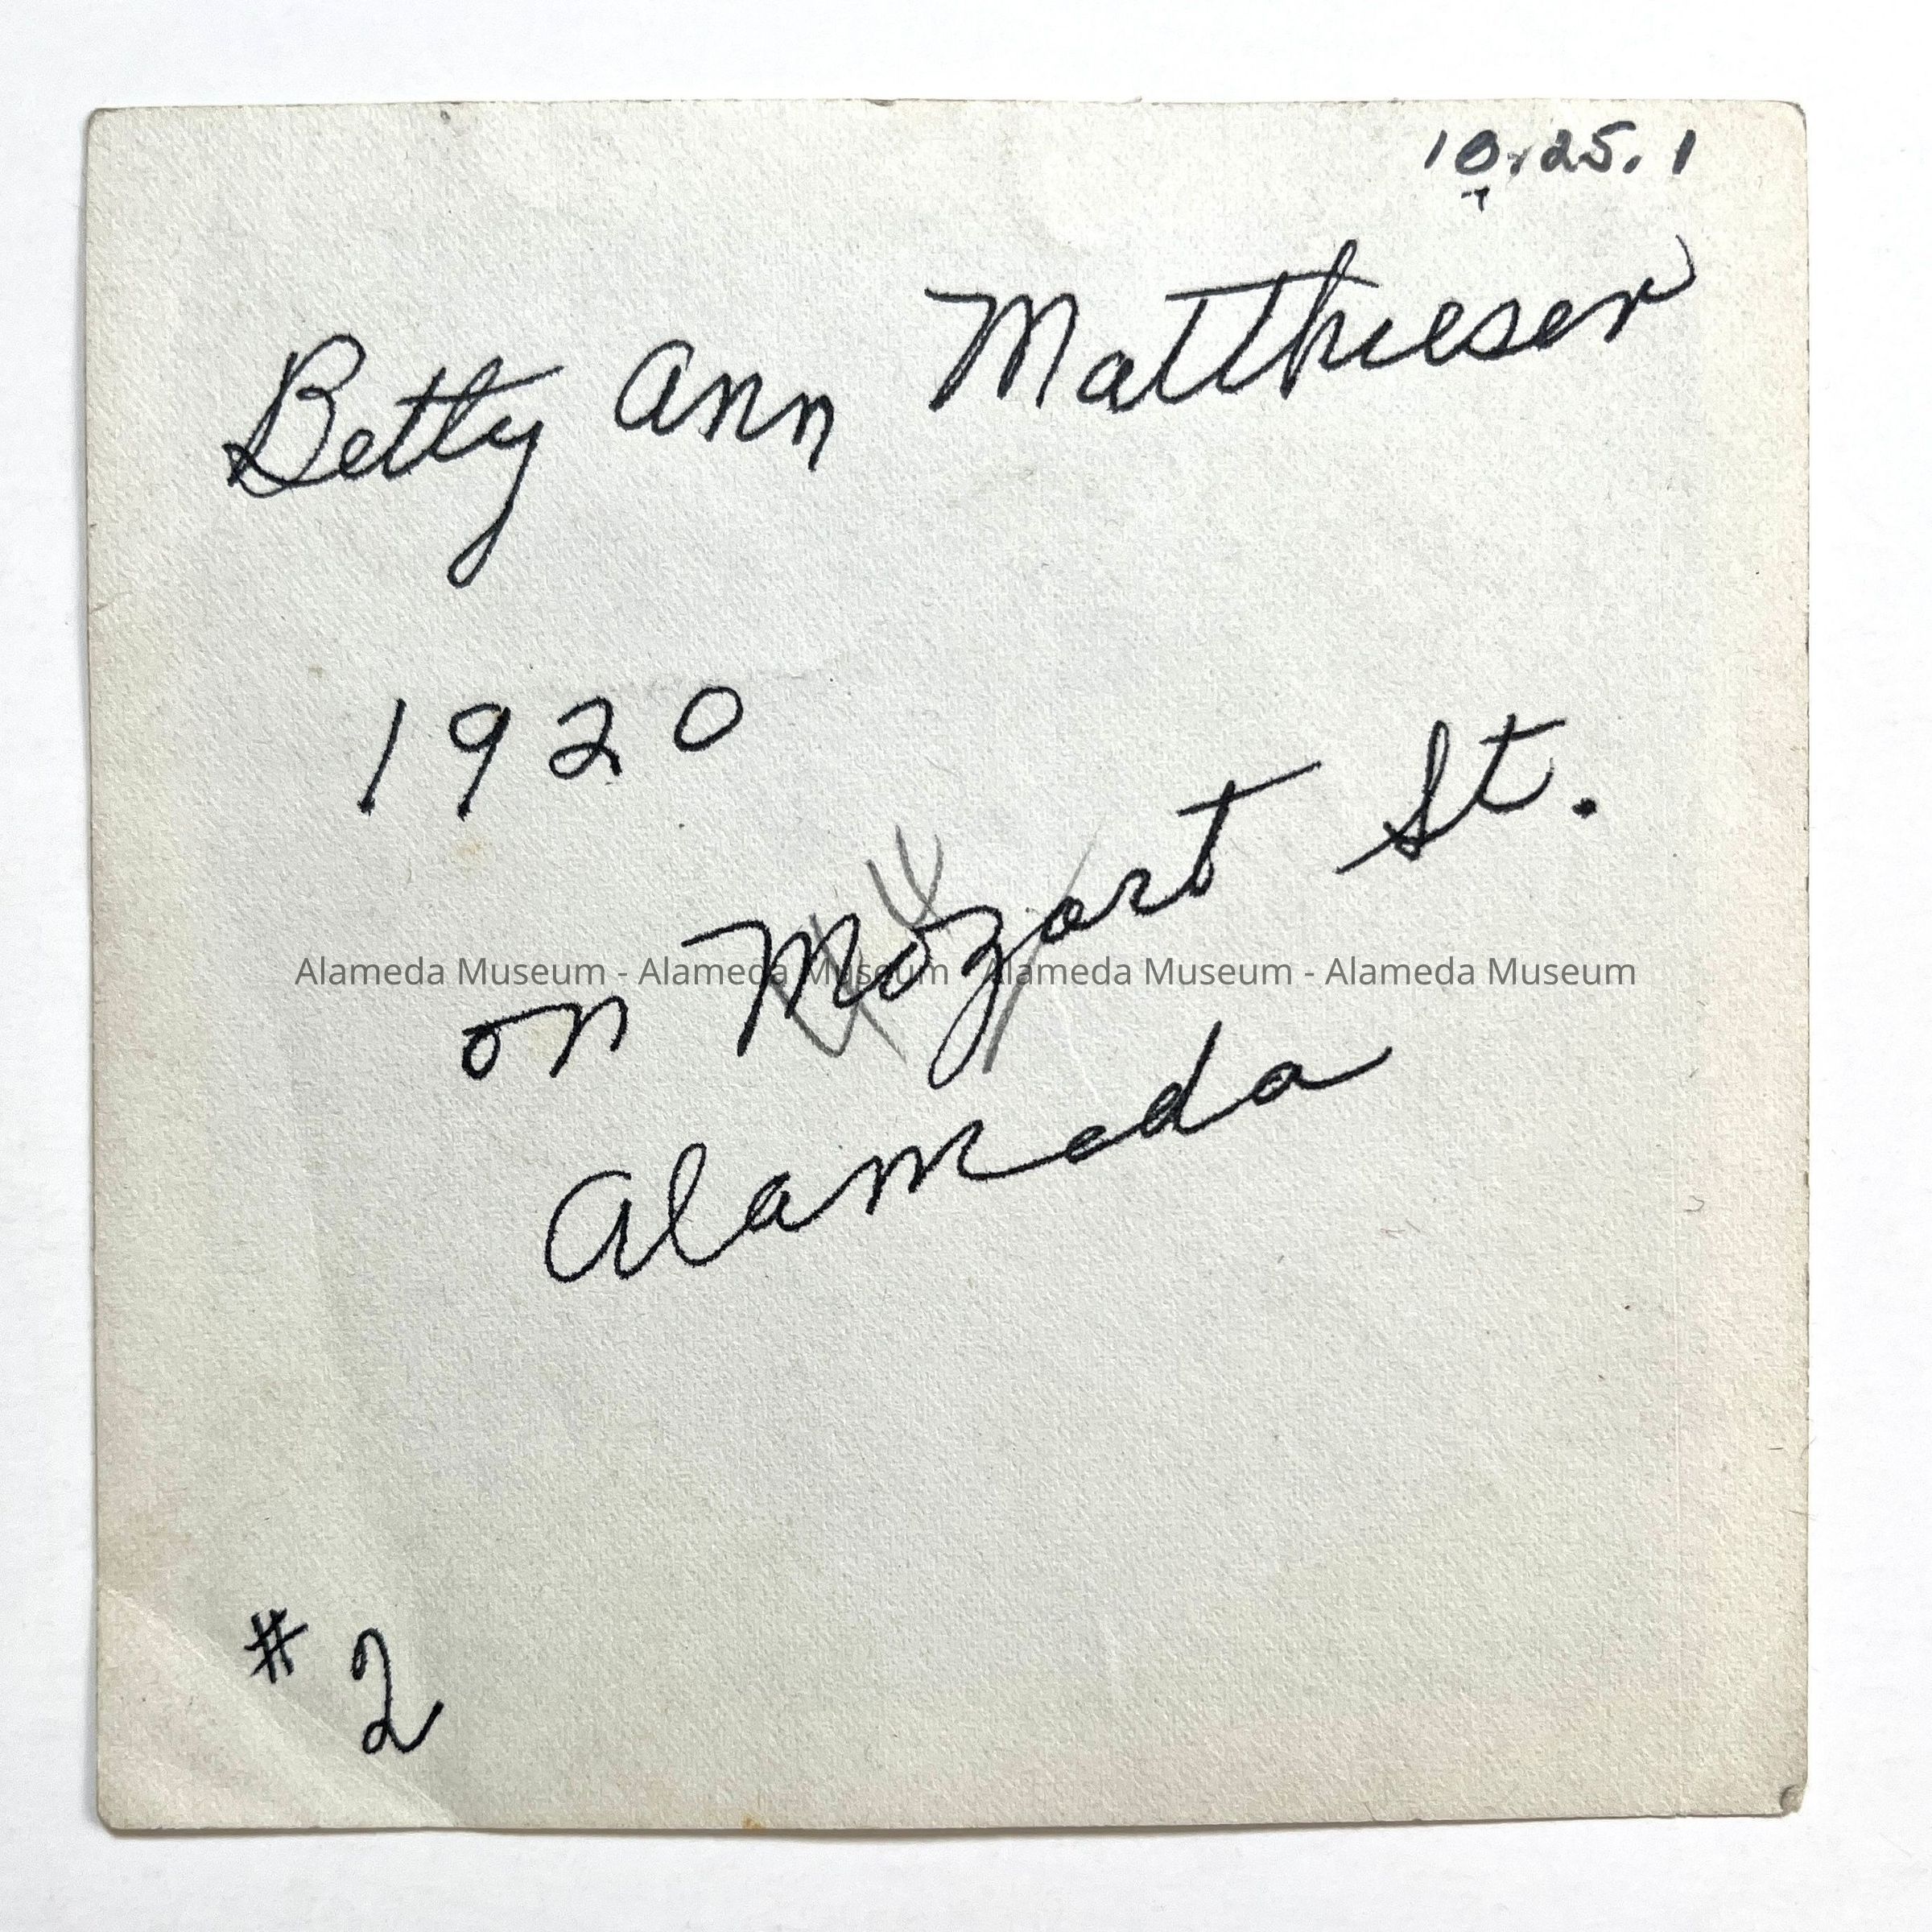 10.25.1
Betty Ann Matthiesen
1920
on Mozart St.
Alameda
Alameda Museum - Alameda Museum - Alameda Museum - Alameda Museum
# 2